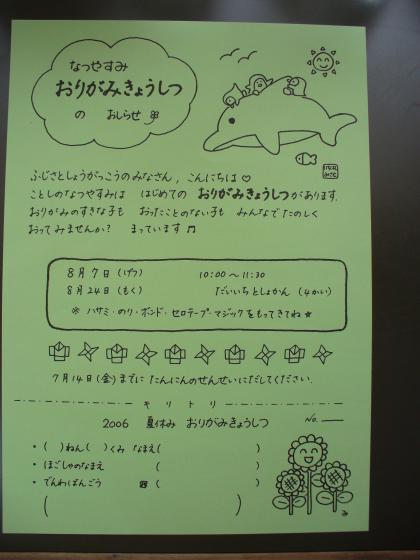 なつやすみ
おりがみきょうしつ
の おしらせ
ふじさとしょうがっこうのみなさん，こんにちは♡
ことしのなつやすみは はじめての おりがみきょうしつがあります.
おりがみのすきな子も おったことのない子も みんなでたのしく
おってみませんか？ まっています♫
8月7日（げつ） 10:00～11:30
8月24日（もく） だいいちとしょかん（4かい）
※ ハサミ・のり・ボンド・セロテープ・マジックをもってきてね★
7月14日(金)までに たんにんのせんせいにだしてください.
キリトリ
2006 夏休み おりがみきょうしつ No.
・（ ）ねん（ ）くみ なまえ（ ）
・ほごしゃのなまえ （ ）
・でんわばんごう ☎（ ）
（ ）